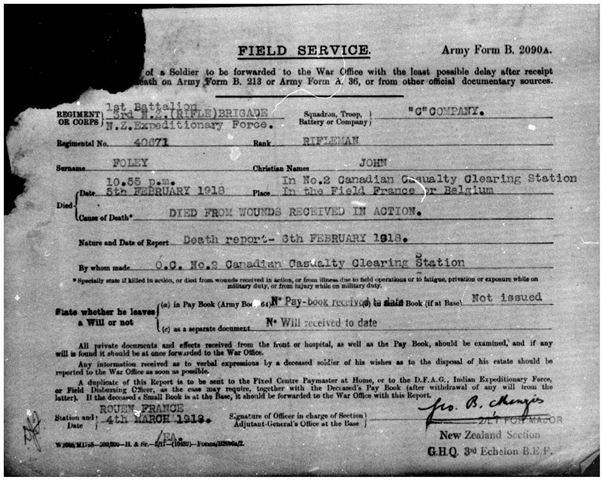 FIELD SERVICE.
Army Form B. 2090A.
of a Soldier to be forwarded to the War Office with the least possible delay after receipt
death on Army Form B. 213 or Army Form A. 36, or from other official documentary sources.
1st Battalion
REGIMENT OR CORPS
3rd N.Z.(RIFLE)BRIGADE
N.Z.Expeditionary Force.
Squadron, Troop, Battery or Company
"C"COMPANY.
Regimental No. 40671
Rank RIFLEMAN
Surname FOLEY
Christian Names JOHN
Died
Date 10.55 p.m. 5th FEBRUARY 1918
Place In No.2 Canadian Casualty Clearing Station
In the Field France or Belgium
Cause of Death* DIED FROM WOUNDS RECEIVED IN ACTION.
Nature and Date of Report Death report- 6th FEBRUARY 1918.
By whom made O.C. No.2 Canadian Casualty Clearing Station
* Specially state if killed in action, or died from wounds received in action, or from illness due to field operations or to fatigue, privation or exposure while on
military duty, or from injury while on military duty.
State whether he leaves a Will or not
(a) in Pay Book (Army Book 64) No Pay-book received (b) in Small Book (if at Base) Not issued
(c) as a separate document No Will received to date
All private documents and effects received from the front or hospital, as well as the Pay Book, should be examined, and if any
will is found it should be at once forwarded to the War Office.
Any information received as to verbal expressions by a deceased soldier of his wishes as to the disposal of his estate should be
reported to the War Office as soon as possible.
A duplicate of this Report is to be sent to the Fixed Centre Paymaster at Home, or to the D.F.A.G., Indian Expeditionary Force,
or Field Disbursing Officer, as the case may require, together with the Deceased's Pay Book (after withdrawal of any will from the
latter). If the deceased's Small Book is at the Base, it should be forwarded to the War Office with this Report.
Station and Date
ROUEN FRANCE
4th MARCH 1918.
Signature of Officer in charge of Section
Adjutant-General's Office at the Base
2/LT FOR MAJOR
New Zealand Section
G.H.Q. 3rd Echelon B.E.F.